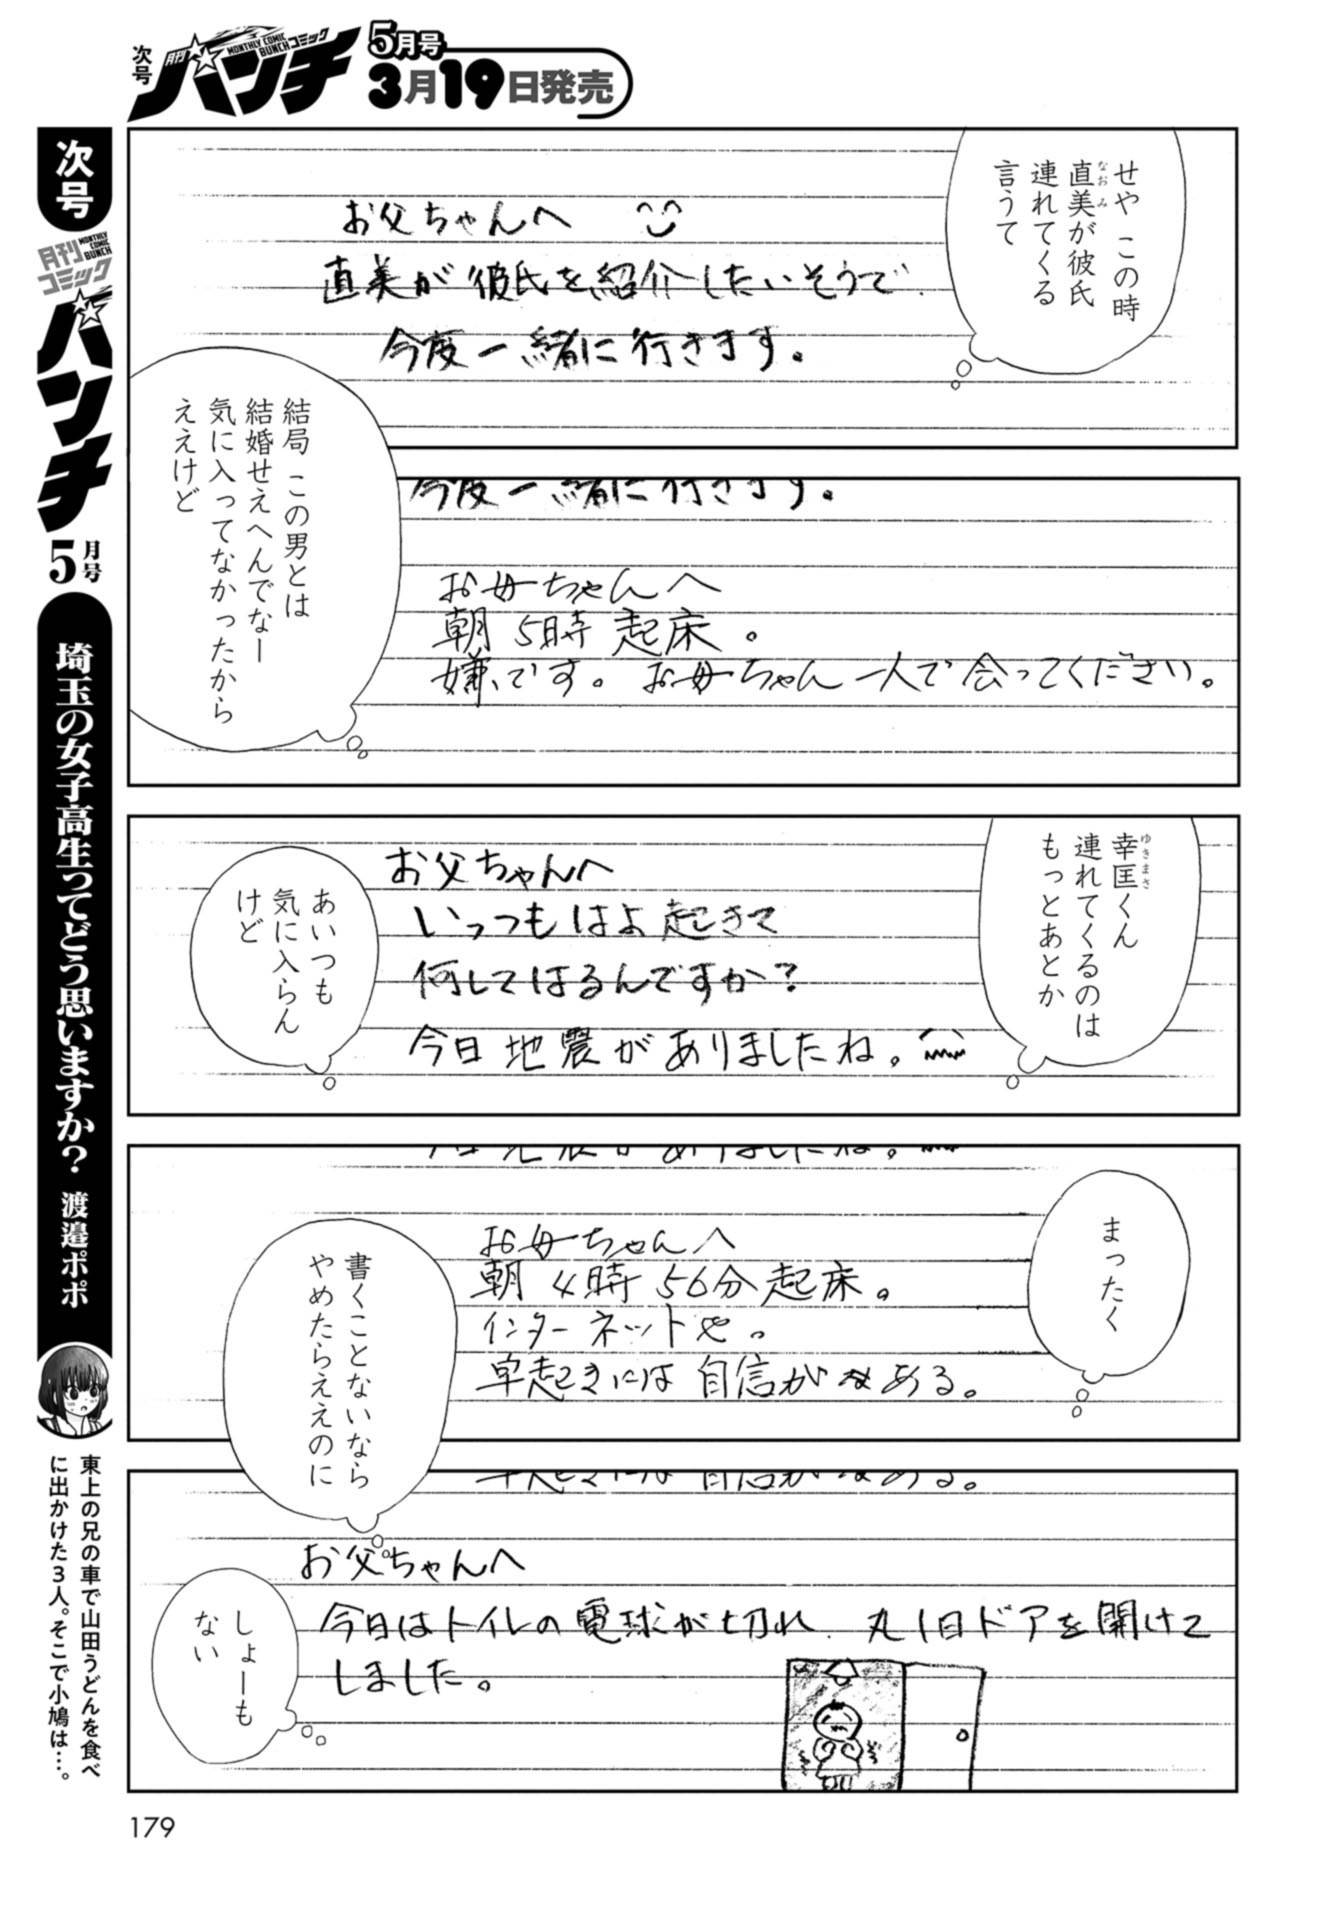 次号
月刊
MONTHLY COMIC BUNCH コミック
バンチ
5月号
3月19日発売
せや この時
直美が彼氏
なおみ
連れてくる
言うて
お父ちゃんへ
直美が彼氏を紹介したいそうで
今度一緒に行きます。
結局 この男とは
結婚せえへんでなー
気に入ってなかったから
ええけど
今度一緒に行きます。
お母ちゃんへ
朝5時起床。
嫌です。お母ちゃん一人で会ってください。
幸匡くん
ゆきまさ
連れてくるのは
もっとあとか
お父ちゃんへ
いっつもはよ起きて
何してはるんですか?
今日地震がありましたね。
あいつも
気に入らん
けど
まったく
今日地震がありましたね。
お母ちゃんへ
朝4時56分起床。
インターネットや。
早起きには自信がある。
書くことないなら
やめたらええのに
早起きには自信がある。
お父ちゃんへ
今日はトイレの電球が切れ、丸1日ドアを開けて
しました。
しょーも
ない
次号
月刊
コミック
MONTHLY COMIC BUNCH
バンチ
5月号
埼玉の女子高生ってどう思いますか? 渡邉ポポ
東上の兄の車で山田うどんを食べ
に出かけた3人。そこで小鳩は…。
179